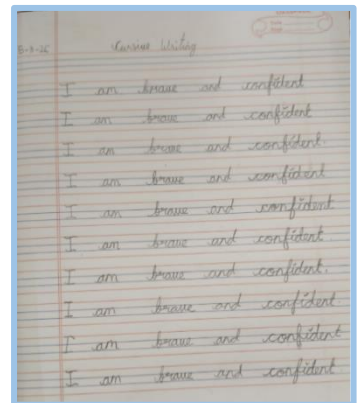 Cursive Writing
I am brave and confident
I am brave and confident
I am brave and confident.
I am brave and confident
I am brave and confident
I am brave and confident.
I am brave and confident.
I am brave and confident.
I am brave and confident
I am brave and confident